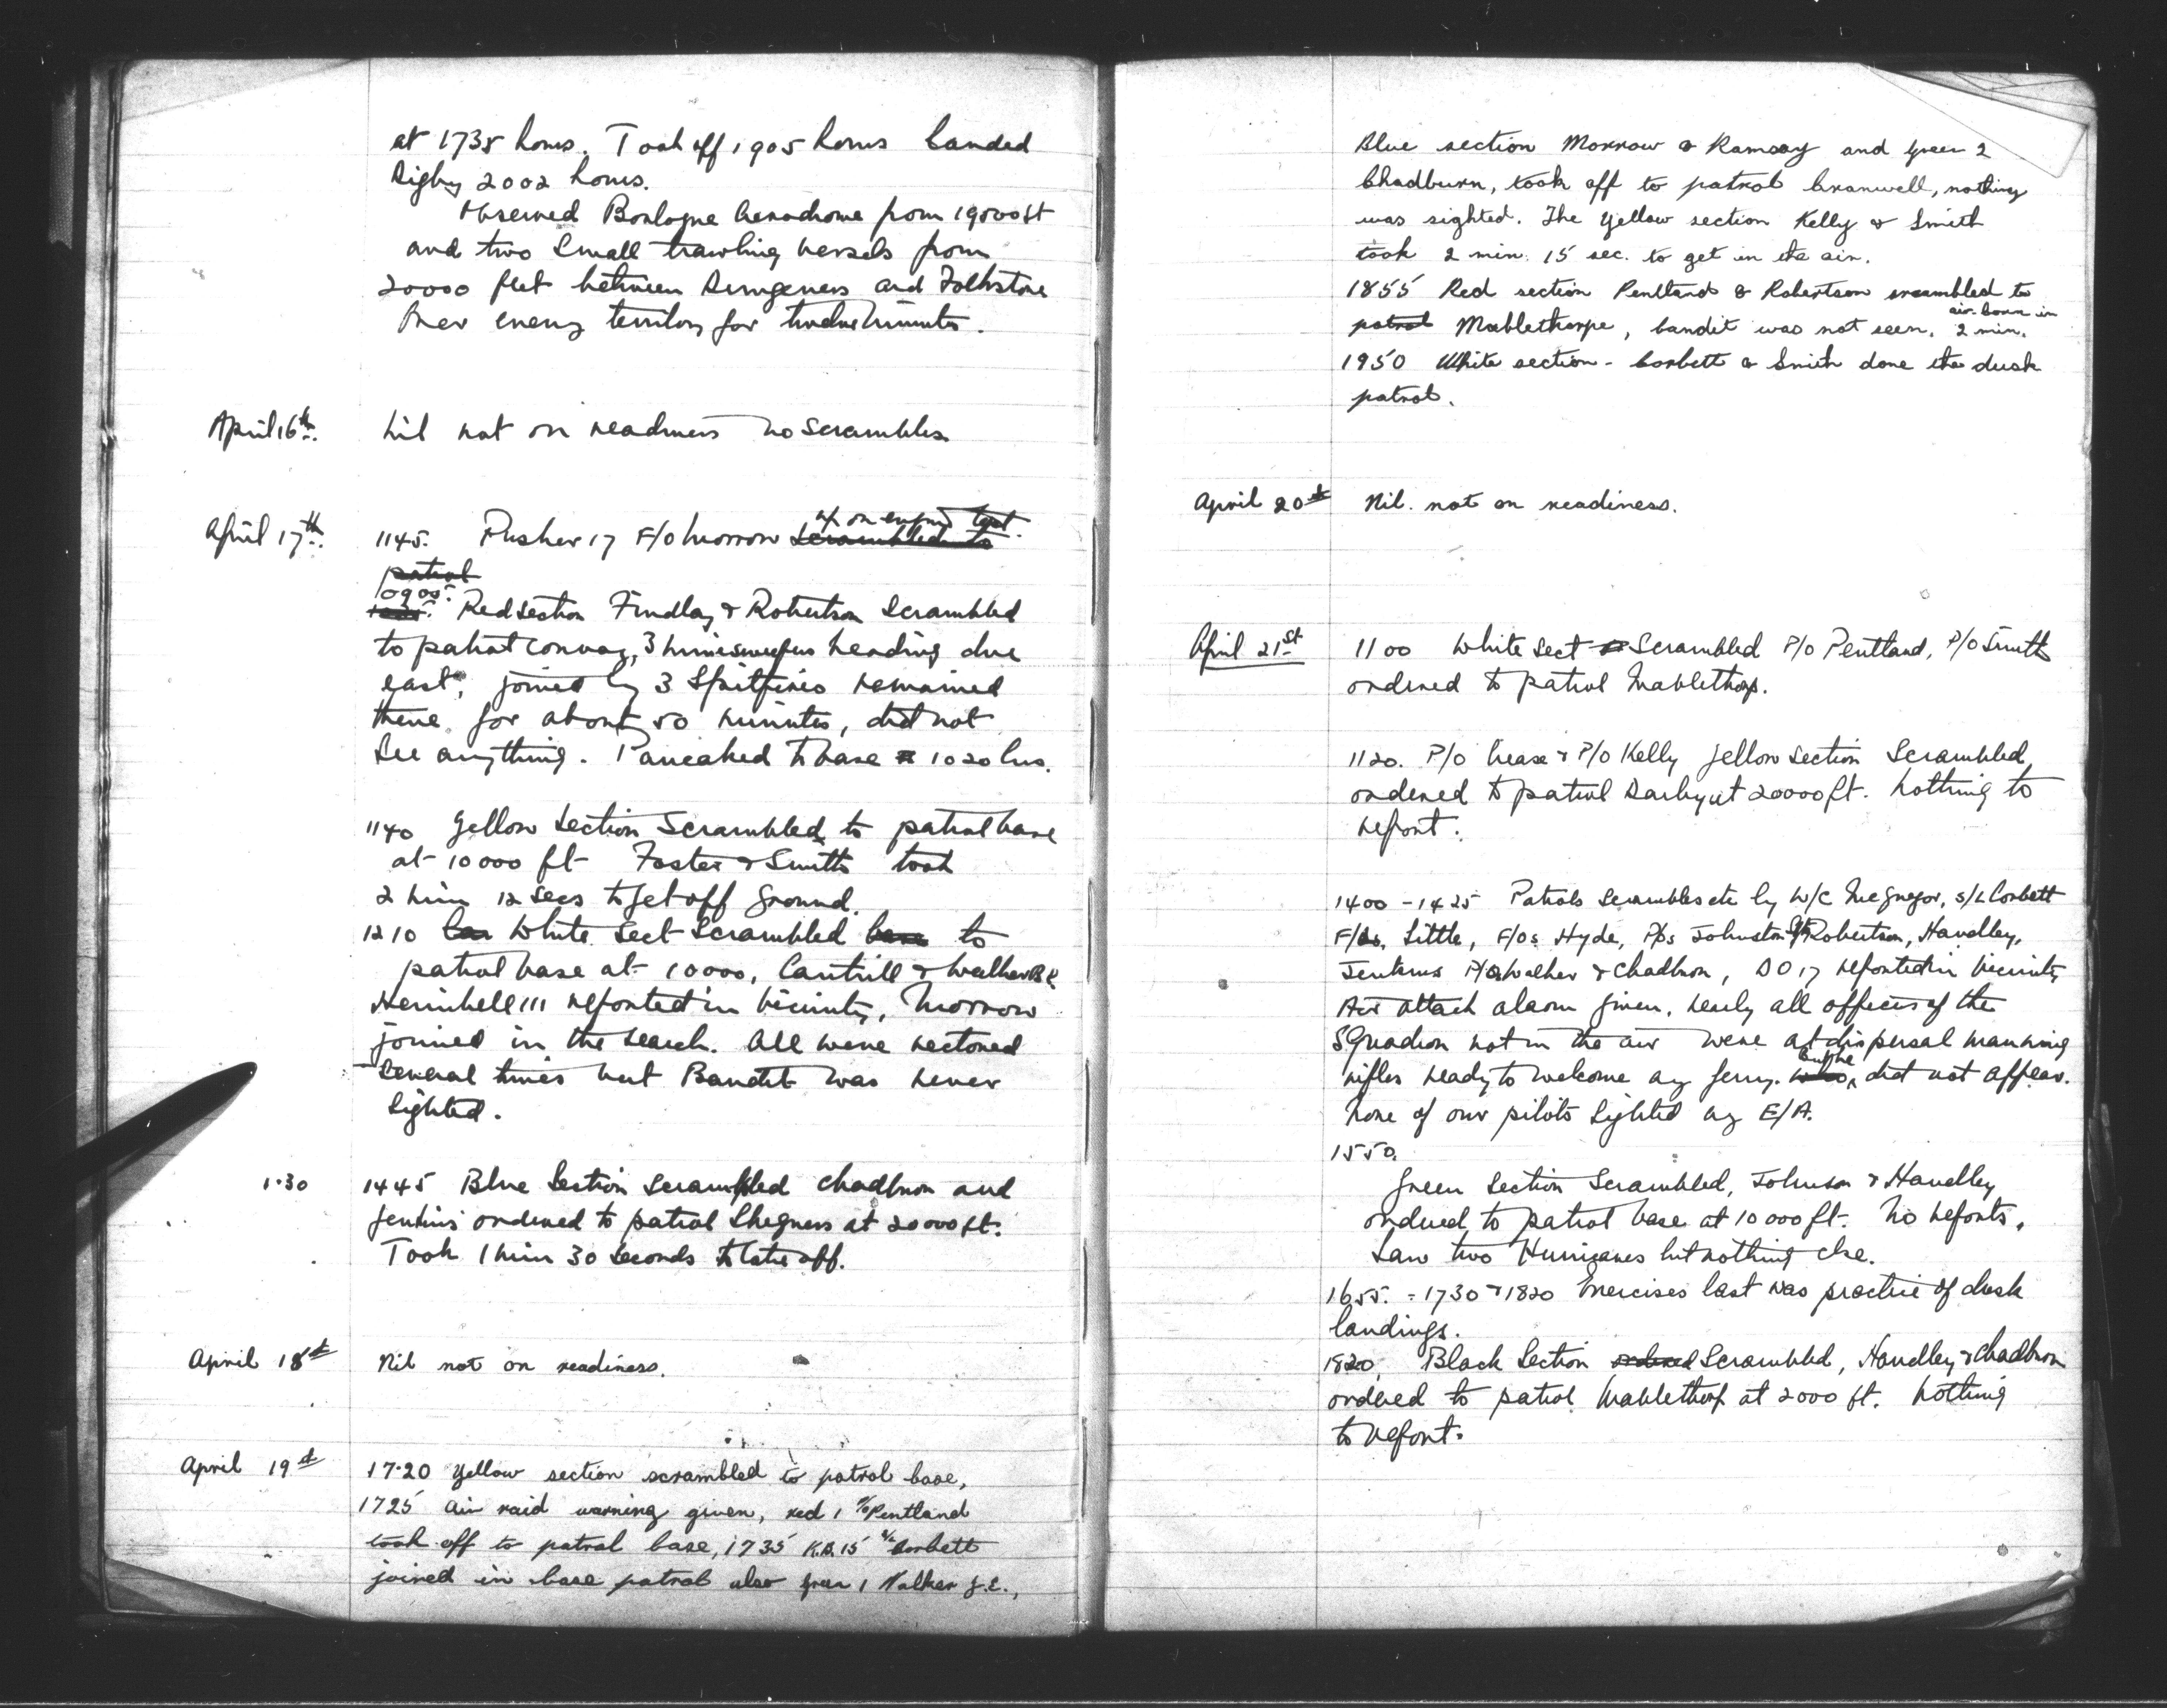 at 1735 hours. Took off 1905 hours landed
Digby 2002 hours.
Observed Boulogne Aerodrome from 19000 ft
and two small trawling vessels from
20000 feet between Dungeness and Folkstone
Over enemy territory for twelve minutes.
April 16th. Nil not on readiness no scrambles.
April 17th. 1145. Pusher 17 F/O Morrow scrambled to
up on engine test.
patrol
0900. Red section Findlay & Robertson scrambled
to patrol convoy, 3 minesweepers heading due
east, joined by 3 Spitfires remained
there for about 50 minutes, did not
see anything. Pancaked to base 1020 hrs.
1140 Yellow Section Scrambled to patrol base
at 10000 ft Foster & Smith took
2 min 12 secs to get off ground.
1210 White Sect Scrambled base to
patrol base at 10000, Cantrill & Walker B R
Heinkell 111 reported in vicinity, Morrow
joined in the search. All were vectored
several times but Bandit was never
sighted.
1.30 1445 Blue Section Scrambled Chadburn and
Jenkins ordered to patrol Skegness at 20000 ft.
Took 1 min 30 seconds to take off.
April 18th Nil not on readiness.
April 19th 17.20 Yellow section scrambled to patrol base,
1725 Air raid warning given, red 1 P/O Pentland
took off to patrol base, 1735 K.B. 15 S/L Corbett
joined in base patrol also green 1 Walker J.E.,
Blue section Morrow & Ramsay and green 2
Chadburn, took off to patrol Cranwell, nothing
was sighted. The yellow section Kelly & Smith
took 2 min. 15 sec. to get in the air.
1855 Red section Pentland & Robertson scrambled to
air-born in
patrol Mablethorpe, bandit was not seen. 2 min.
1950 White section - Corbett & Smith done the dusk
patrol.
April 20th Nil. not on readiness.
April 21st 1100 White Sect Scrambled P/O Pentland, P/O Smith
ordered to patrol Mablethorp.
1120. P/O Crease & P/O Kelly yellow section Scrambled,
ordered to patrol Darby at 20000 ft. Nothing to
report.
1400 - 1425 Patrols Scrambles etc by W/C McGregor, S/L Corbett
Little, F/Os Hyde, P/Os Johnston Robertson, Handley,
Jenkins Walker & Chadburn, DO 17 reported in vicinity
Air attack alarm given, nearly all officers of the
Squadron not in the air were at dispersal manning
but he
rifles ready to welcome any Jerry. who did not appear.
None of our pilots sighted any E/A.
1550.
Green Section Scrambled, Johnson & Handley
ordered to patrol base at 10000 ft. No reports.
Saw two Hurricanes but nothing else.
1655. - 1730 & 1820 Exercises last was practice of dusk
landings.
1820, Black Section ordered Scrambled, Handley & Chadburn
ordered to patrol Mablethorp at 2000 ft. Nothing
to report.